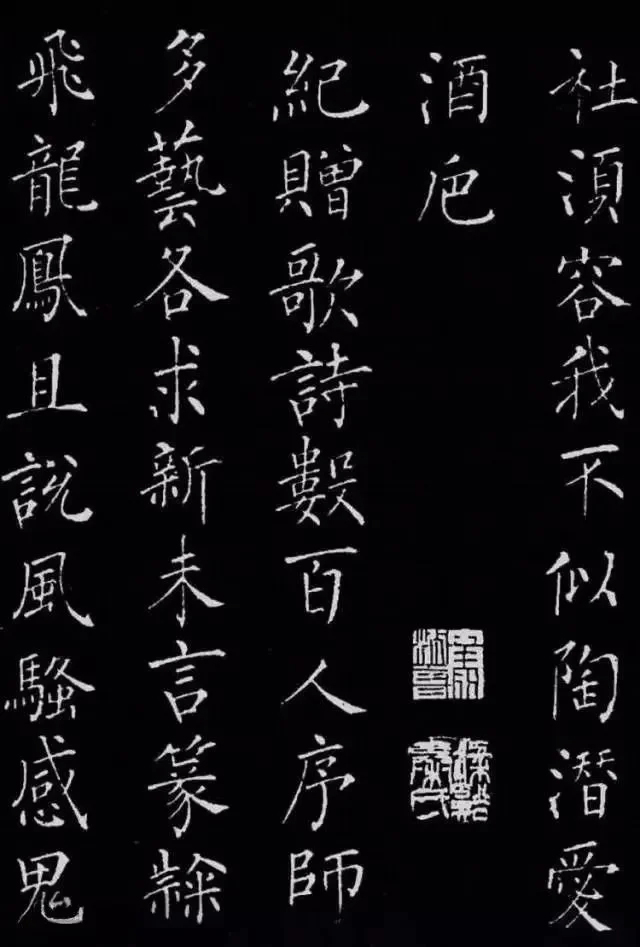 社湏容我不似陶潛愛
酒卮
紀贈歌詩數百人序師
多藝各求新未言篆隸
飛龍鳳且說風騷感鬼